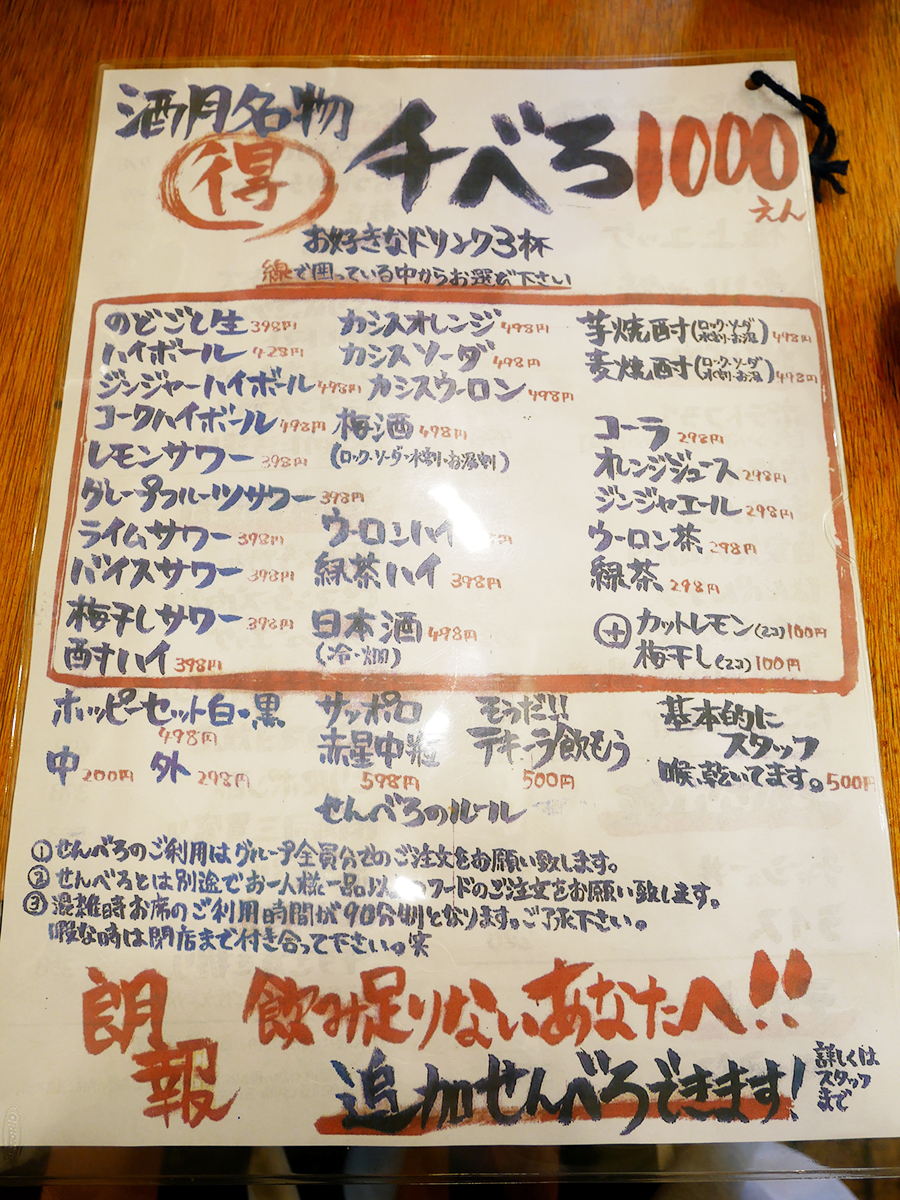 酒月名物
得 千べろ1000えん
お好きなドリンク3杯
線で囲っている中からお選び下さい
のどごし生 398円
ハイボール 428円
ジンジャーハイボール 498円
コークハイボール 498円
レモンサワー 398円
グレープフルーツサワー 398円
ライムサワー 398円
バイスサワー 398円
梅干しサワー 398円
酎ハイ 398円
カシスオレンジ 498円
カシスソーダ 498円
カシスウーロン 498円
梅酒 498円
(ロック・ソーダ・水割・お湯割)
ウーロンハイ 円
緑茶ハイ 398円
日本酒 498円
(冷・燗)
芋焼酎(ロック・ソーダ水割り・お湯) 498円
麦焼酎(ロック・ソーダ水割り・お湯) 498円
コーラ 298円
オレンジジュース 298円
ジンジャエール 298円
ウーロン茶 298円
緑茶 298円
+カットレモン(2コ)100円
梅干し(2コ)100円
ホッピーセット白・黒
498円
中 200円 外 298円
サッポロ
赤星中瓶
598円
そうだ!!
テキーラ飲もう
500円
基本的に
スタッフ
喉、乾いてます。500円
せんべろのルール
①せんべろのご利用はグループ全員分でのご注文をお願い致します。
②せんべろとは別途でお一人様一品以 フードのご注文をお願い致します。
③混雑時お席のご利用時間が90分制となります。ご了承下さい。
暇な時は閉店まで付き合って下さい。笑
朗報 飲み足りないあなたへ!!
追加せんべろできます!
詳しくは
スタッフ
まで